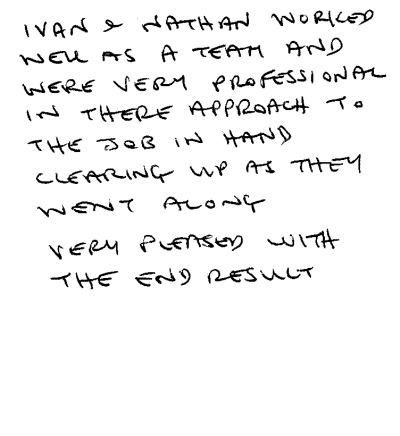 IVAN & NATHAN WORKED
WELL AS A TEAM AND
WERE VERY PROFESSIONAL
IN THERE APPROACH TO
THE JOB IN HAND
CLEARING UP AS THEY
WENT ALONG
VERY PLEASED WITH
THE END RESULT